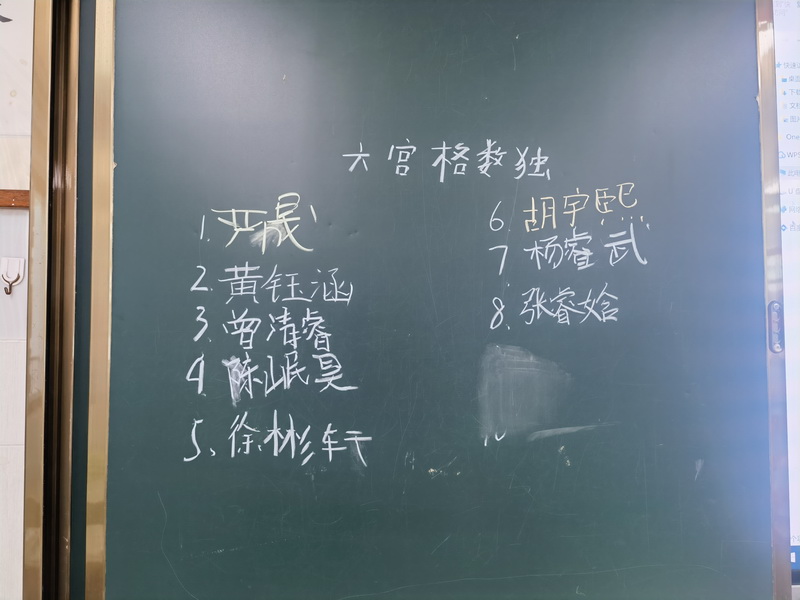 六宫格数独
1. 严晟
2. 黄钰涵
3. 曾清睿
4 陈岷昊
5、徐彬轩
6. 胡宇熙
7 杨睿武
8. 张睿晗